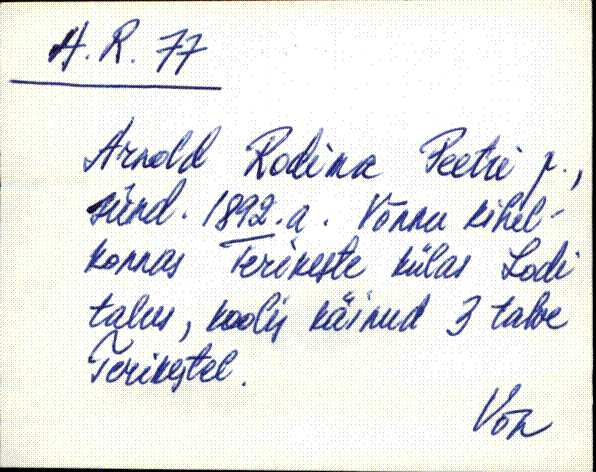 A. R. 77
Arnold Rodima Peetri p.,
sünd. 1892. a. Võnnu kihel-
konnas Terikeste külas Lodi
talus, koolis käinud 3 talve
Terikestel.
Võn